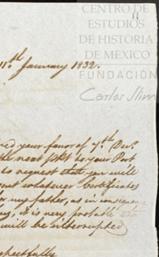 CENTRO DE
ESTUDIOS
DE HISTORIA
DE MEXICO
FUNDACIÓN
Carlos Slim
11.th January 1832.
your favor of 7.th Dec.
the next to your Port
to request that you will
whatever Certificates
my father, as in consequence
it is very probable
will be interrupted